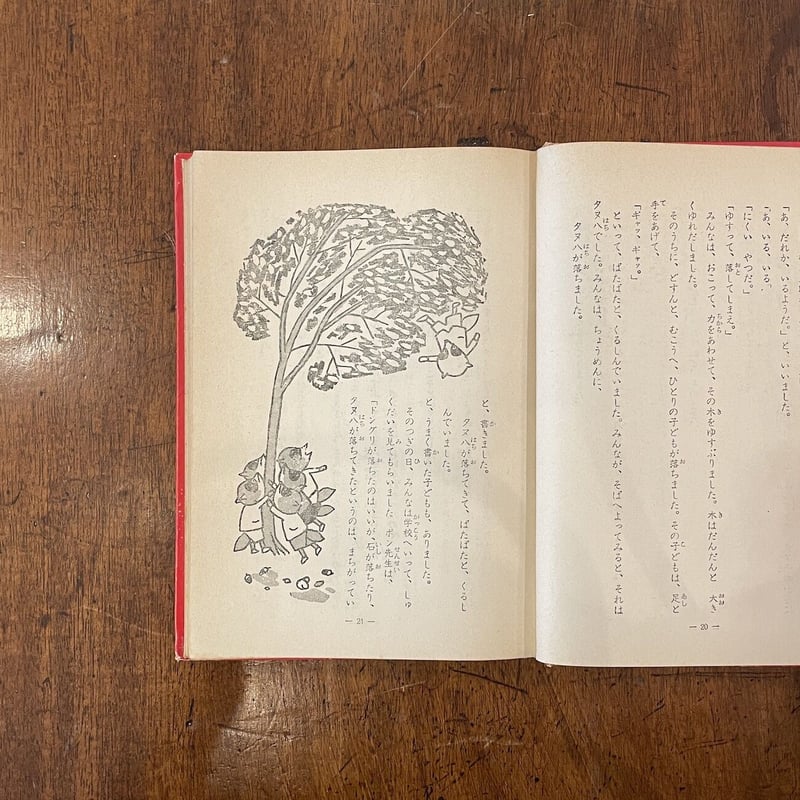 「あ、だれか、いるようだ。」と、いいました。
「あ、いる、いる。
「にくい　やつだ。」
「ゆすって、落してしまえ。」
みんなは、おこって、力をあわせて、その木をゆすぶりました。木はだんだんと　大き
くゆれだしました。
そのうちに、どすんと、むこうへ、ひとりの子どもが落ちました。その子どもは、足と
手をあげて、
「ギャッ、ギャッ。」
といって、ばたばたと、くるしんでいました。みんなが、そばへよってみると、それは
タヌハでした。みんなは、ちょうめんに、
タヌハが落ちました。
— 20 —
と、書きました。
タヌハが落ちてきて、ばたばたと、くるし
んでいました。
と、うまく書いた子どもも、ありました。
そのつぎの日、みんなは学校へいって、しゅ
くだいを見てもらいました。ポン先生は、
「ドングリが落ちたのはいいが、石が落ちたり、
タヌハが落ちてきたというのは、まちがってい
— 21 —